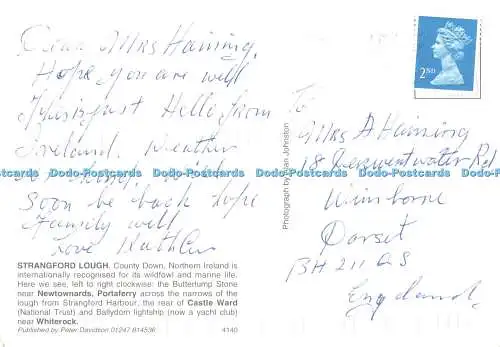 Dear Mrs Haining,
Hope you are well
This is just Hello from
Ireland. Weather
soon be back hope
Family well
Love
STRANGFORD LOUGH. County Down, Northern Ireland is
internationally recognised for its wildfowl and marine life.
Here we see, left to right clockwise: the Butterlump Stone
near Newtownards, Portaferry across the narrows of the
lough from Strangford Harbour, the rear of Castle Ward
(National Trust) and Ballydorn lightship (now a yacht club)
near Whiterock.
Published by Peter Davidson 01247 814536 4140
Photograph by Alan Johnston
2ND
To
Mrs A Haining
18 Derwentwater Rd
Wimborne
Dorset
BH21
England
Dodo-Postcards Dodo-Postcards Dodo-Postcards Dodo-Postcards